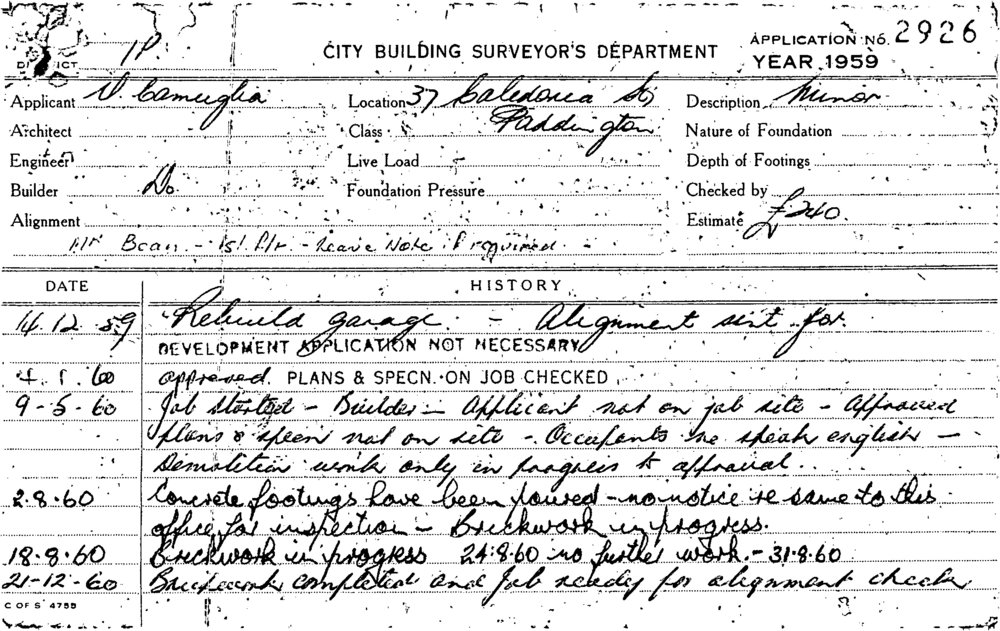 IP.
DISTRICT
CITY BUILDING SURVEYOR'S DEPARTMENT
APPLICATION No. 2926
YEAR 1959
Applicant V. Camuglia
Location 37 Caledonia St, Paddington
Description Minor
Architect
Class
Nature of Foundation
Engineer
Live Load
Depth of Footings
Builder Do
Foundation Pressure
Checked by
Alignment
Estimate £240.
Mr Bean - 1st - Leave Note if required -
DATE
HISTORY
14.12.59 Rebuild garage. - Alignment sent for.
DEVELOPMENT APPLICATION NOT NECESSARY
4.1.60 approved. PLANS & SPECN. ON JOB CHECKED
9-5-60 Job Started - Builder - Applicant not on job site - Approved
plans & specn not on site - Occupants no speak english -
Demolition work only in progress to approval.
2.8.60 Concrete footings have been poured - no notice re same to this
office for inspection - Brickwork in progress.
18.8.60 Brickwork in progress 24.8.60 no further work. - 31.8.60
21-12-60 Brickwork completed and Job ready for alignment check
C OF S 4755